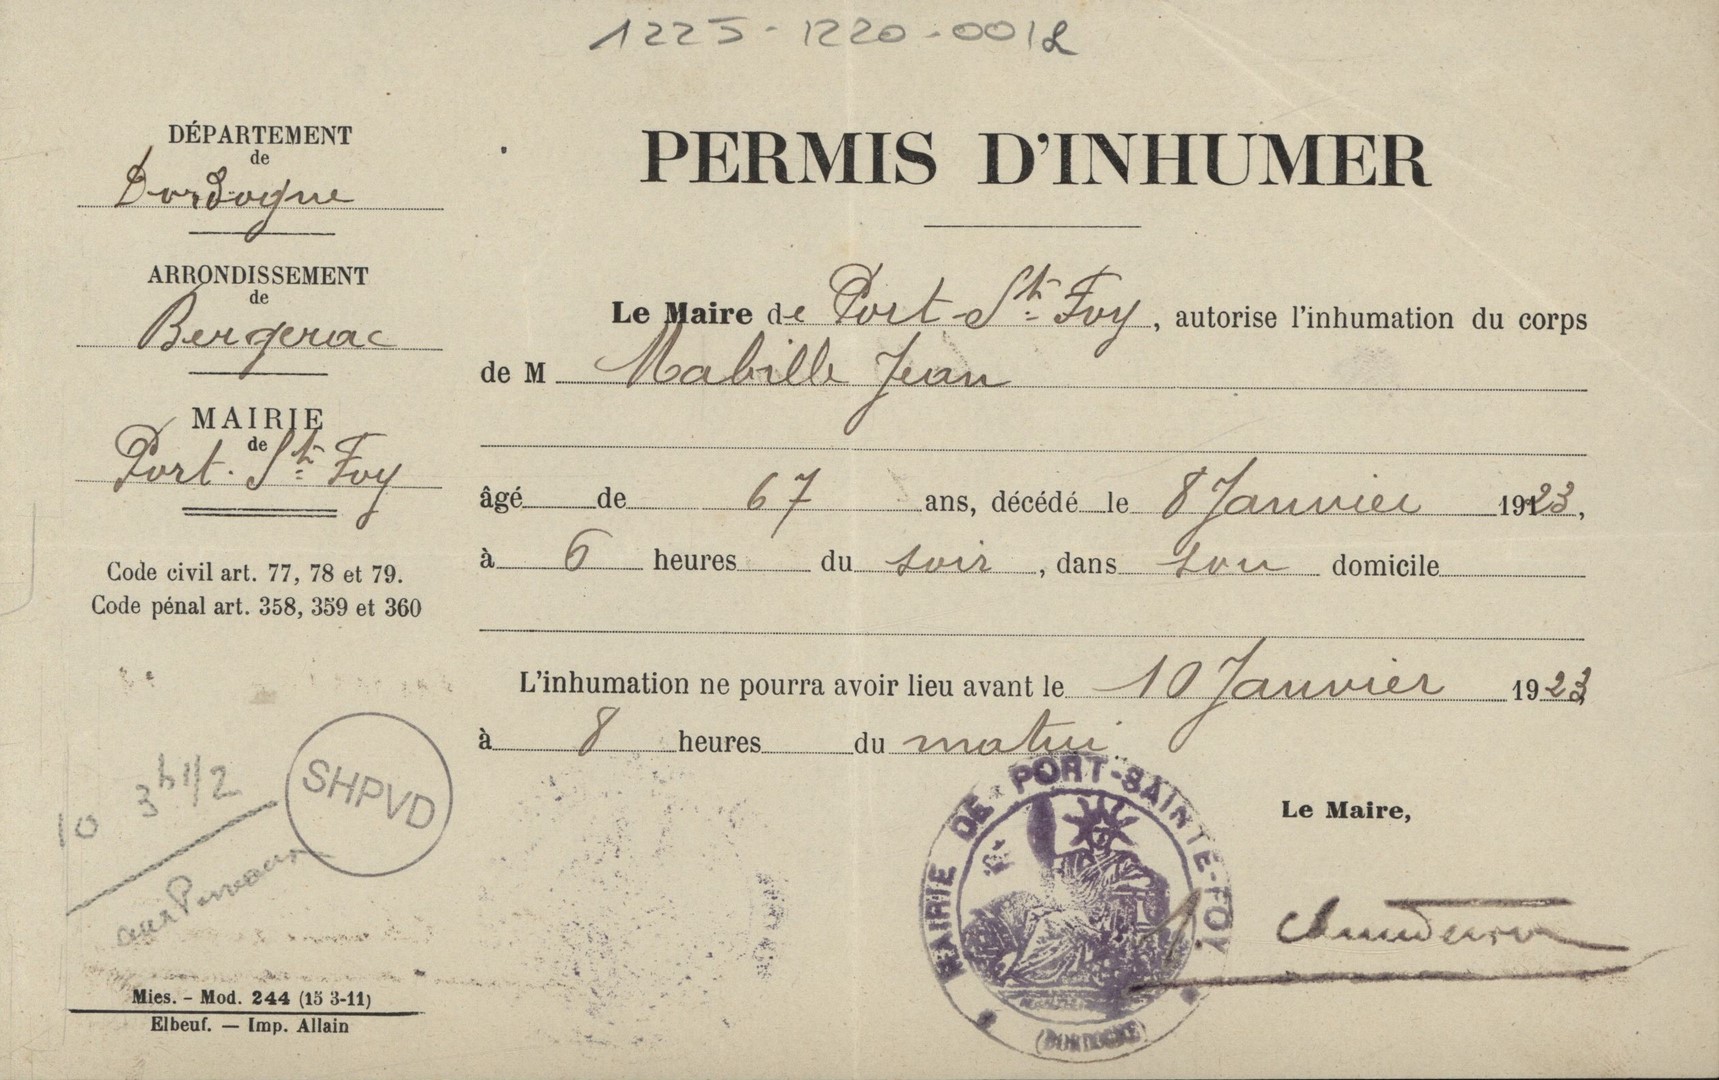 1225-1220-0012
DÉPARTEMENT
de
Dordogne
ARRONDISSEMENT
de
Bergerac
MAIRIE
de
Port-Ste Foy
Code civil art. 77, 78 et 79.
Code pénal art. 358, 359 et 360
PERMIS D'INHUMER
Le Maire de Port-Ste Foy, autorise l'inhumation du corps
de M Mabille Jean
âgé de 67 ans, décédé le 8 Janvier 1923,
à 6 heures du soir, dans son domicile
L'inhumation ne pourra avoir lieu avant le 10 Janvier 1923
à 8 heures du matin
Le Maire,
MAIRIE DE PORT-SAINTE-FOY
(DORDOGNE)
SHPVD
10 3h 1/2
Mies. - Mod. 244 (15 3-11)
Elbeuf. — Imp. Allain